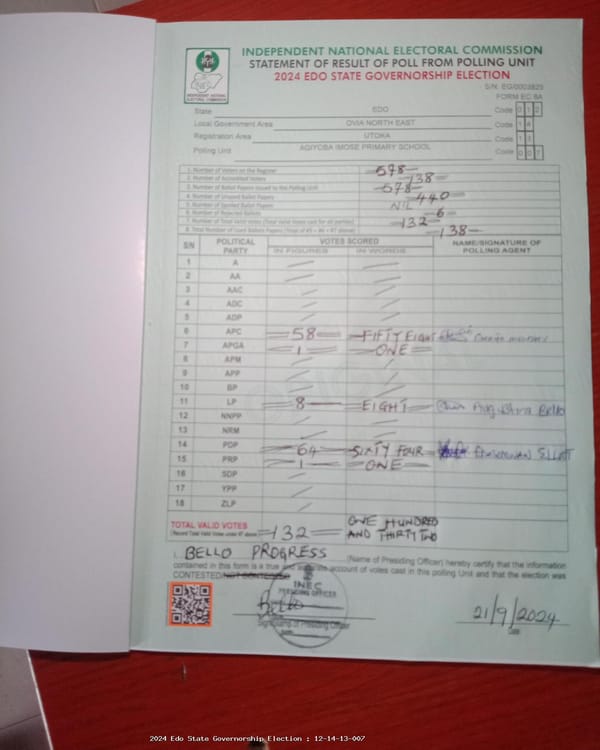 INDEPENDENT NATIONAL ELECTORAL COMMISSION
STATEMENT OF RESULT OF POLL FROM POLLING UNIT
2024 EDO STATE GOVERNORSHIP ELECTION
INEC
INDEPENDENT NATIONAL ELECTORAL COMMISSION
S/N: EG/0003825
FORM EC 8A
State EDO Code 012
Local Government Area OVIA NORTH EAST Code 14
Registration Area UTOKA Code 13
Polling Unit AGIYOBA IMOSE PRIMARY SCHOOL Code 007
1. Number of Voters on the Register 578
2. Number of Accredited Voters 138
3. Number of Ballot Papers Issued to the Polling Unit 578
4. Number of Unused Ballot Papers 440
5. Number of Spoiled Ballot Papers NIL
6. Number of Rejected Ballots 6
7. Number of Total Valid Votes (Total Valid Votes cast for all parties) 132
8. Total Number of Used Ballot Papers (Total of #5 + #6 + #7 above) 138
SN POLITICAL PARTY VOTES SCORED IN FIGURES IN WORDS NAME/SIGNATURE OF POLLING AGENT
1 A
2 AA
3 AAC
4 ADC
5 ADP
6 APC 58 FIFTY EIGHT
7 APGA 1 ONE
8 APM
9 APP
10 BP
11 LP 8 EIGHT Augustina Bello
12 NNPP
13 NRM
14 PDP 64 SIXTY FOUR
15 PRP 1 ONE
16 SDP
17 YPP
18 ZLP
TOTAL VALID VOTES
(Record Total Valid Votes under #7 above) 132 ONE HUNDRED AND THIRTY TWO
I, BELLO PROGRESS (Name of Presiding Officer) hereby certify that the information
contained in this form is a true and account of votes cast in this polling Unit and that the election was
CONTESTED/NOT CONTESTED
INEC
PRESIDING OFFICER
Bello
Signature of Presiding Officer
21/9/2024
Date
2024 Edo State Governorship Election : 12-14-13-007